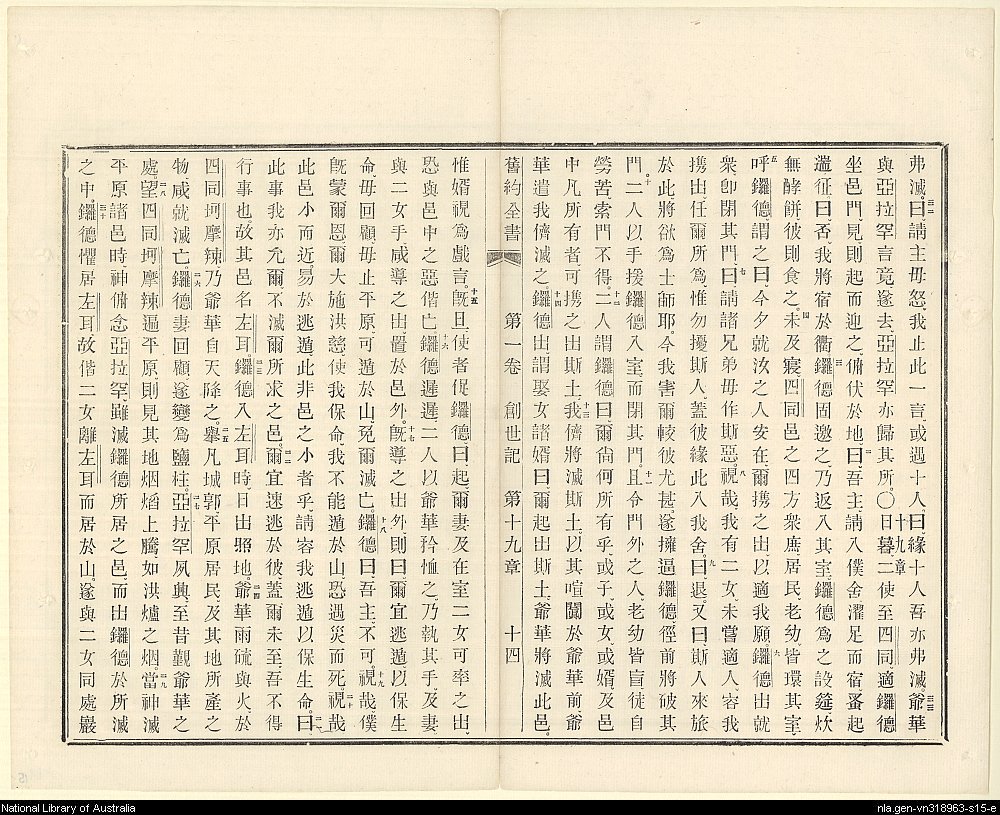 弗滅。三二曰、請主毋怒、我止此一言、或遇十人、曰、緣十人吾亦弗滅。三三爺華
與亞拉罕言竟遂去、亞拉罕亦歸其所。〇十九章日暮、二使至四同、適鑼德
坐邑門、見則起而迎之、俯伏於地。二曰、吾主、請入僕舍濯足而宿、蚤起
遄征、曰、否、我將宿於衢。三鑼德固邀之、乃返入其室、鑼德為之設筵、炊
無酵餅、彼則食之。四未及寢、四同邑之四方衆庶、居民、老幼、皆環其室、
五呼鑼德、謂之曰、今夕就汝之人安在、爾攜之出、以適我願。六鑼德出就
衆、卽閉其門。七曰、請諸兄弟毋作斯惡。八視哉、我有二女、未嘗適人、容我
攜出、任爾所為、惟勿擾斯人、蓋彼緣此入我舍。九曰、退、又曰、斯人來旅
於此、將欲為士師耶。今我害爾較彼尤甚。遂擁逼鑼德、徑前將破其
門。十二人以手援鑼德入室、而閉其門。十一且令門外之人、老幼皆盲、徒自
勞苦、索門不得。十二二人謂鑼德曰、爾尙何所有乎、或子、或女、或婿、及邑
中凡所有者、可攜之出斯土。十三我儕將滅斯土、以其喧闐於爺華前、爺
華遣我儕滅之。十四鑼德出、謂娶女諸婿曰、爾起出斯土、爺華將滅此邑。
舊約全書 第一卷 創世記 第十九章 十四
惟婿視為戲言。十五旣旦、使者促鑼德、曰、起、爾妻及在室二女可牽之出、
恐與邑中之惡偕亡。十六鑼德遲遲、二人以爺華矜恤之、乃執其手、及妻
與二女手、咸導之出、置於邑外。十七旣導之出外、則曰、爾宜逃遁、以保生
命、毋回顧、毋止平原、可遁於山、免爾滅亡。十八鑼德曰、吾主、不可。十九視哉、僕
旣蒙爾恩、爾大施洪慈、使我保命、我不能遁於山、恐遇災而死。二十視哉、
此邑小而近、易於逃遁、此非邑之小者乎、請容我逃遁、以保生命。二一曰、
此事我亦允爾、不滅爾所求之邑。二二爾宜速逃於彼、蓋爾未至、吾不得
行事也、故其邑名左耳。二三鑼德入左耳時、日出照地。二四爺華雨硫與火、於
四同、坷摩辣、乃爺華自天降之。二五舉凡城郭、平原居民、及其地所產之
物、咸就滅亡。二六鑼德妻回顧、遂變為鹽柱。二七亞拉罕夙興、至昔覲爺華之
處。二八望四同、坷摩辣、遍平原、則見其地烟熖上騰、如洪爐之烟。二九當神滅
平原諸邑時、神俯念亞拉罕、雖滅鑼德所居之邑、而出鑼德於所滅
之中。三十鑼德懼居左耳、故偕二女離左耳、而居於山、遂與二女同處巖
National Library of Australia
nla.gen-vn318963-s15-e